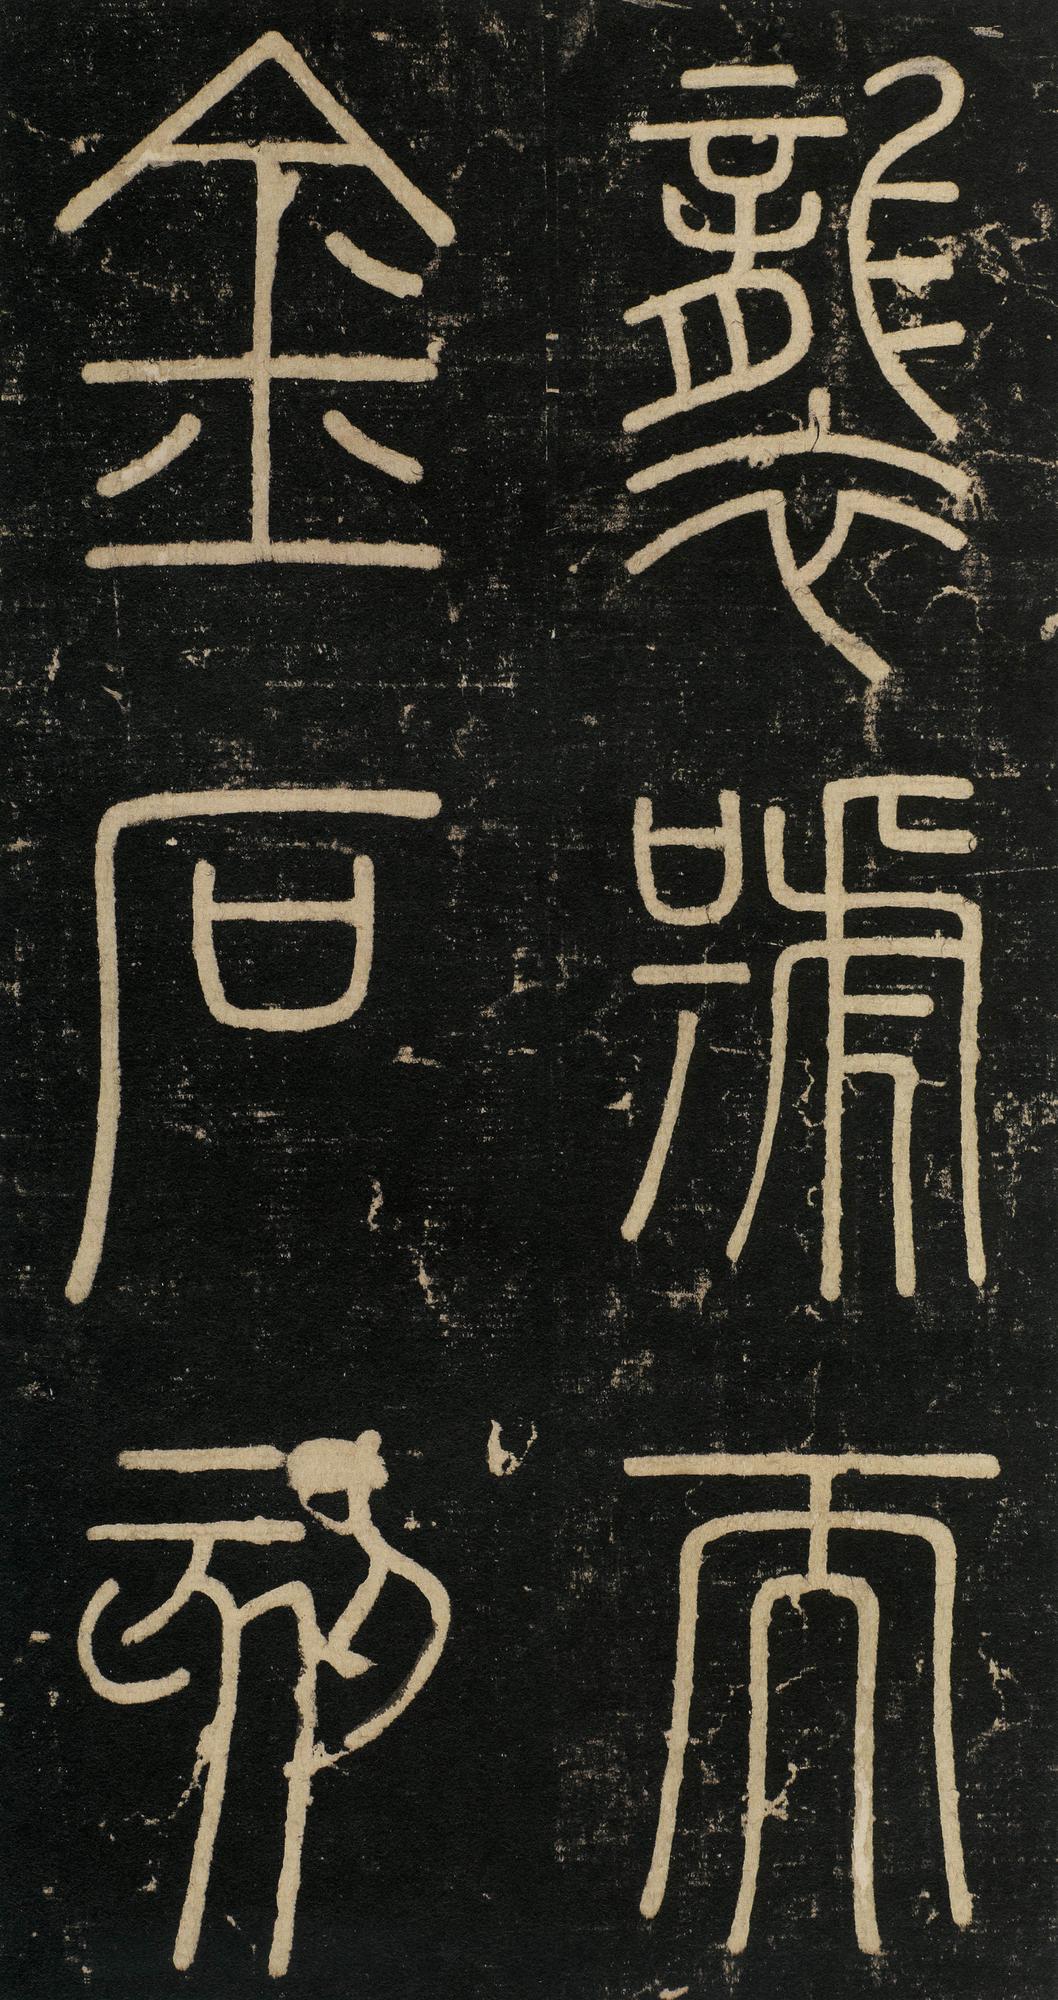 襲號而
金石刻